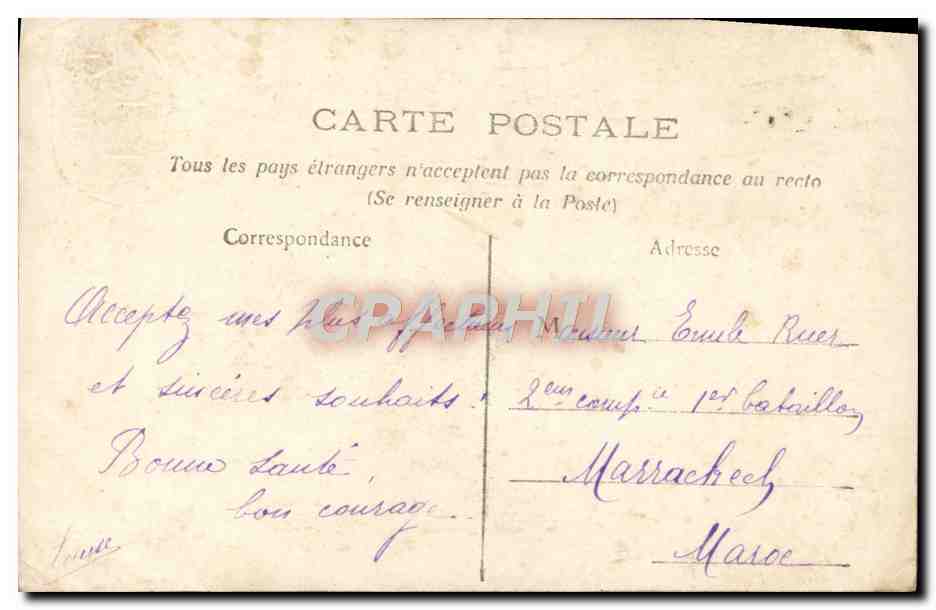 CARTE POSTALE
Tous les pays étrangers n'acceptent pas la correspondance au recto
(Se renseigner à la Poste)
Correspondance
Acceptez mes plus affectueux
et sincères souhaits.
Bonne santé,
bon courage
Adresse
Monsieur Emile Ruer
2eme compie 1er bataillon
Marrackech
Maroc
CPAPHIL